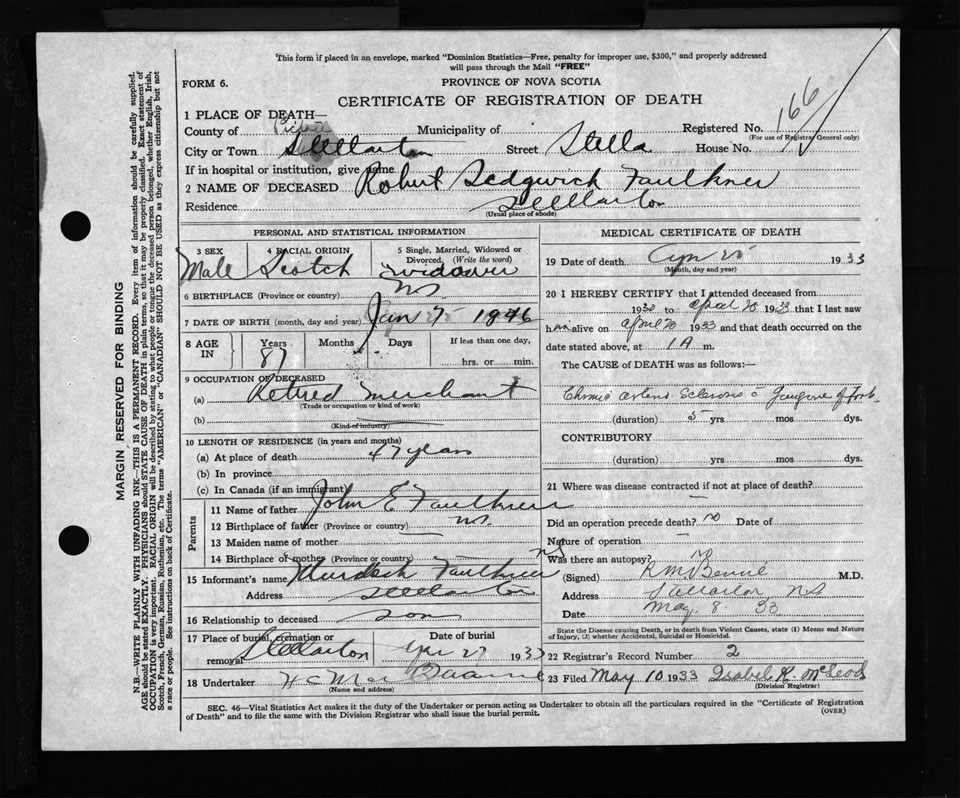 This form if placed in an envelope, marked "Dominion Statistics—Free, penalty for improper use, $300," and properly addressed
will pass through the Mail "FREE"
FORM 6.
PROVINCE OF NOVA SCOTIA
CERTIFICATE OF REGISTRATION OF DEATH
166
1 PLACE OF DEATH—
County of Pictou Municipality of Registered No.
(For use of Registrar General only)
City or Town Stellarton Street Stella House No.
If in hospital or institution, give name
2 NAME OF DECEASED Robert Sedgwick Faulkner
Residence Stellarton
(Usual place of abode)
PERSONAL AND STATISTICAL INFORMATION
3 SEX 4 RACIAL ORIGIN 5 Single, Married, Widowed or Divorced, (Write the word)
Male Scotch Widower
6 BIRTHPLACE (Province or country) NS
7 DATE OF BIRTH (month, day and year) Jan 1846
8 AGE IN Years Months Days If less than one day,
87 hrs. or min.
9 OCCUPATION OF DECEASED
(a) Retired Merchant
(Trade or occupation or kind of work)
(b)
(Kind of industry)
10 LENGTH OF RESIDENCE (in years and months)
(a) At place of death 47 years
(b) In province
(c) In Canada (if an immigrant)
Parents
11 Name of father John E Faulkner
12 Birthplace of father (Province or country) NS
13 Maiden name of mother
14 Birthplace of mother (Province or country) NS
15 Informant's name Murdoch Faulkner
Address Stellarton
16 Relationship to deceased Son
17 Place of burial, cremation or removal Stellarton
Date of burial Apr 27 1933
18 Undertaker
(Name and address)
MEDICAL CERTIFICATE OF DEATH
19 Date of death Apr 1933
(Month, day and year)
20 I HEREBY CERTIFY that I attended deceased from
to April 20 1933 that I last saw
him alive on April 20 1933 and that death occurred on the
date stated above, at 1 A m.
The CAUSE of DEATH was as follows:—
Chronic arterio Sclerosis c Gangrene of foot
(duration) 5 yrs mos dys.
CONTRIBUTORY
(duration) yrs mos dys.
21 Where was disease contracted if not at place of death?
Did an operation precede death? no Date of
Nature of operation —
Was there an autopsy? no
(Signed) M.D.
Address Stellarton NS
Date May. 8. 33
State the Disease causing Death, or in death from Violent Causes, state (1) Means and Nature
of Injury, (2) whether Accidental, Suicidal or Homicidal.
22 Registrar's Record Number 2
23 Filed May 10 1933 Isabel K. McLeod
(Division Registrar)
SEC. 46—Vital Statistics Act makes it the duty of the Undertaker or person acting as Undertaker to obtain all the particulars required in the "Certificate of Registration
of Death" and to file the same with the Division Registrar who shall issue the burial permit.
(OVER)
MARGIN RESERVED FOR BINDING
N.B.—WRITE PLAINLY WITH UNFADING INK—THIS IS A PERMANENT RECORD. Every item of information should be carefully supplied.
AGE should be stated EXACTLY. PHYSICIANS should STATE CAUSE OF DEATH in plain terms, so that it may be properly classified. Exact statement of
OCCUPATION is very important. RACIAL ORIGIN will be described by stating to what people or tongue the deceased person belonged, whether English, Irish,
Scotch, French, German, Russian, Ruthenian, etc. The terms "AMERICAN" or "CANADIAN" SHOULD NOT BE USED as they express citizenship but not
a race or people. See instructions on back of Certificate.